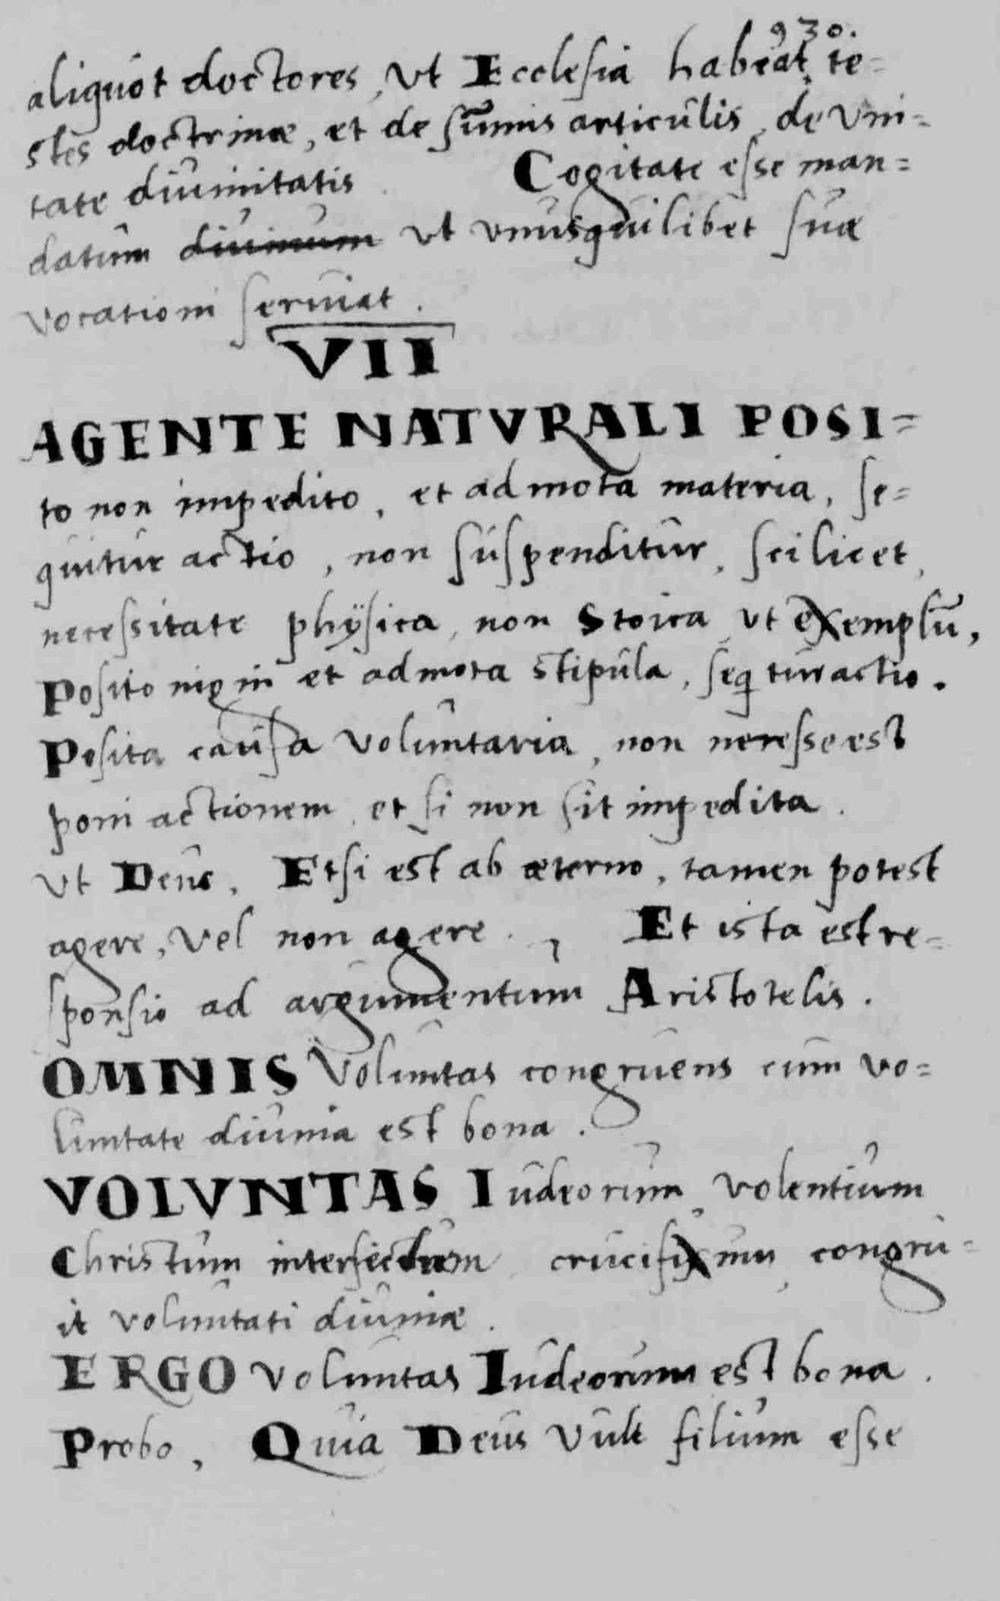 930.
aliquot doctores, vt Ecclesia habeat te=
stes doctrinæ, et de sum̄is articulis, de vni=
tate diuinitatis Cogitate esse man=
datum diuinum vt vnusquilibet suæ
vocationi seruiat.
VII
AGENTE NATVRALI POSI=
to non impedito, et admota materia, se=
quitur actio, non suspenditur, scilicet,
necessitate physica, non Stoica, vt exemplū,
Posito igni et admota stipula, seq̄turactio.
Posita causa voluntaria, non necesse est
poni actionem, et si non sit impedita.
vt Deus. Etsi est ab æterno, tamen potest
agere, vel non agere. Et ista est re=
sponsio ad argumentum Aristotelis.
OMNIS Voluntas congruens cum vo=
luntate diuina est bona.
VOLVNTAS Iudeorum, volentium
Christum interfectum, crucifixum, congru=
it voluntati diuinæ.
ERGO voluntas Iudeorum est bona.
Probo, Quia Deus vult filium esse